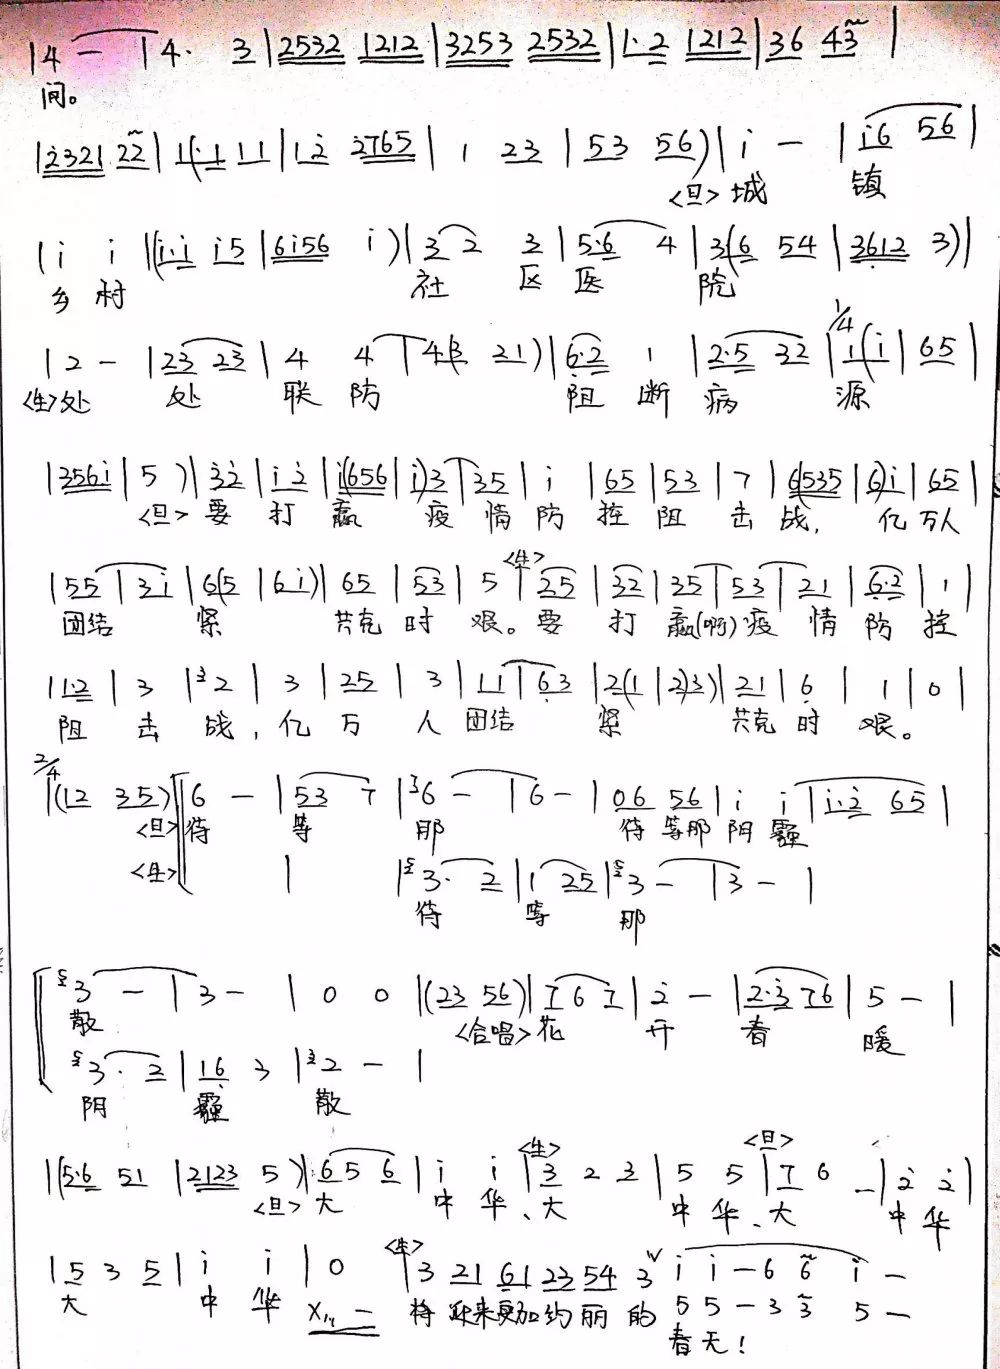 |4 - |4· 3|2532 1212|3253 2532|1·2 1212|36 43|
间。
|2321 22|1(·1 11|12 2765|1 23|53 56)|i - |i6 56|
<旦>城 镇
|i i|(i·i i5|6i56 i)|3 2 3|5·6 4|3(6 54|3612 3)|
乡 村 社 区 医 院
1/4
|2 - |23 23|4 4|4(3 21)|6·2 1|2·5 32|1(i|65|
<生>处 处 联 防 阻 断 病 源
|356i|5 )|32|i2|i(656|i)3|35|i|65|53|7|6(535|6)i|65|
<旦>要 打 赢 疫 情 防 控 阻 击 战, 亿 万人
<生>
|55|3i|6(5|6i)|65|53|5|25|32|35|53|21|6·2|1|
团结 紧 共克 时 艰。要 打 赢(啊)疫 情 防 控
|1·2|3|32|3|25|3|11|63|2(1|2)3)|21|6|1|0|
阻 击 战, 亿 万 人 团结 紧 共克 时 艰。
2/4
|(12 35)|6 - |53 7|36 - |6 - |06 56|i i|i·2 65|
<旦>待 等 那 待 等那 阴 霾
<生> | |3· 2|1 25|3 - |3 - |
待 等 那
3 - |3 - |0 0|(23 56)|7 6 7|2 - |2·3 76|5 - |
散 <合唱>花 开 春 暖
3· 2|16 3|32 - |
阴 霾 散
<生> <旦>
|(5·6 51|2123 5)|6 5 6|i i|3 2 3|5 5|7 6 -|2 2|
<旦>大 中 华、大 中 华、大 中 华
<生>
|5 3 5|i i|0 |3 21 61 23 54 3 i i - 6 6 i -
大 中 华 将 迎来更加灼丽 的 5 5 - 3 3 5 -
春天!